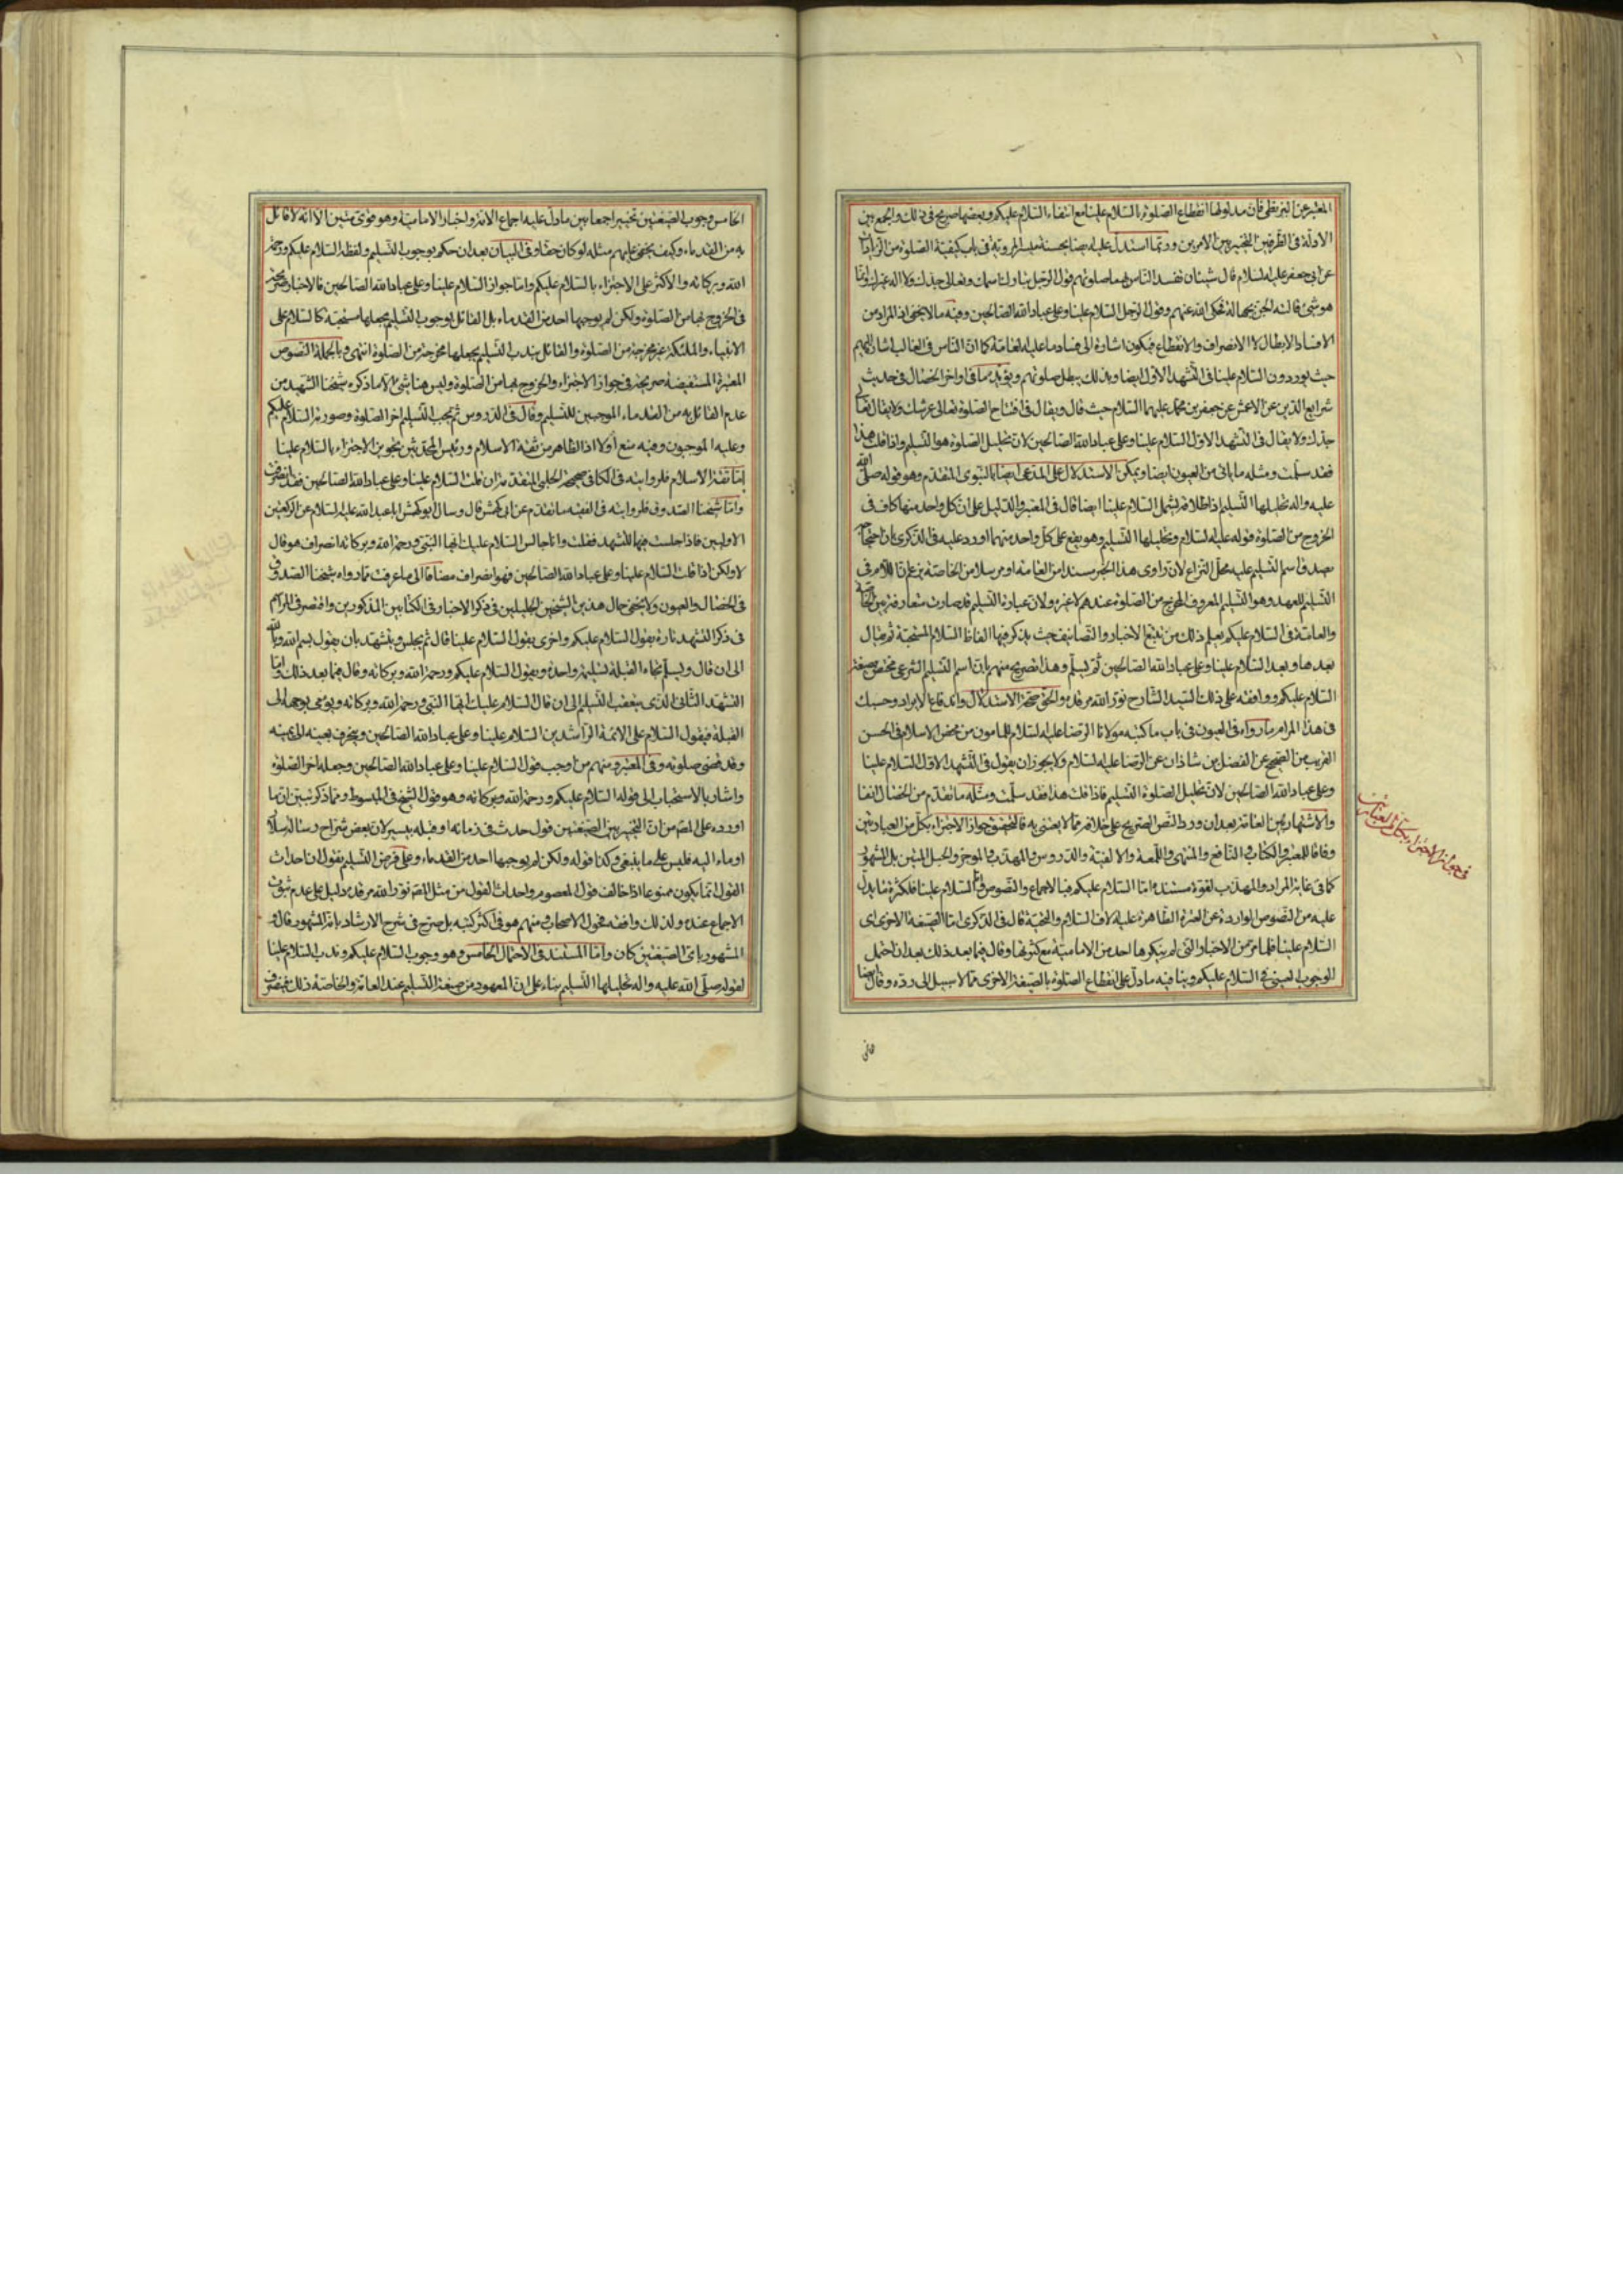 المعتبر عن البزنطي فان مدلولها انقطاع الصلوة بالسلام علينا مع انتفاء السلام عليكم وبعضها صريح في ذلك والجمع بين
الادلة في الطرفين التخيير بين الامرين وربما استدل عليه ايضا بحسنة ميسر المروية في باب كيفية الصلوة من الزيادات
عن ابي جعفر عليه السلام قال شيئان يفسد الناس بهما صلوتهم قول الرجل تبارك اسمك وتعالى جدك ولا اله غيرك وانما
هو شئ قالته الجن بجهالة فحكى الله عنهم وقول الرجل السلام علينا وعلى عباد الله الصالحين وفيه ما لا يخفى اذ المراد من
الافساد الابطال لا الانصراف والانقطاع فيكون اشارة الى فساد ما عليه العامة كما ان الناس في الغالب اشارة اليهم
حيث يوردون السلام علينا في التشهد الاول ايضا وبذلك يبطل صلوتهم ويؤيده ما في اواخر الخصال في حديث
شرايع الدين عن الاعمش عن جعفر بن محمد عليهما السلام حيث قال ويقال في افتتاح الصلوة تعالى عرشك ولا يقال تعالى
جدك ولا يقال في التشهد الاول السلام علينا وعلى عباد الله الصالحين لان تحليل الصلوة هو التسليم واذا قلت هذا
فقد سلمت ومثله ما ياتي من العيون ايضا ويمكن الاستدلال على المدعى ايضا بالنبوي المتقدم وهو قوله صلى الله
عليه واله تحليلها التسليم اذ اطلاقه يشمل السلام علينا ايضا قال في المعتبر والدليل على ان كل واحد منهما كاف في
الخروج من الصلوة قوله عليه السلام وتحليلها التسليم وهو يقع على كل واحد منهما اورد عليه في الذكرى بان
صدق اسم التسليم عليه محل النزاع لان راوي هذا الخبر مسندا من العامة او مرسلا من الخاصة اللام في
التسليم للعهد وهو التسليم المعروف المخرج من الصلوة عندهم لا غيره ولان عبارة التسليم قد صارت متعارفة بين الخاصة
والعامة في السلام عليكم يعلم ذلك من تتبع الاخبار والتصانيف حيث يذكر فيها الفاظ السلام المستحبة ثم يقال
بعدها وبعد السلام علينا وعلى عباد الله الصالحين ثم يسلم وهذا تصريح منهم بان اسم التسليم الشرعي مختص بصيغة
السلام عليكم ووافقه على ذلك السيد الشارح نور الله مرقده والحق صحة الاستدلال واندفاع الايراد وحسبك
في هذا المرام ما رواه في العيون في باب ما كتبه مولانا الرضا عليه السلام للمامون من محض الاسلام في الحسن
القريب من الصحيح عن الفضل بن شاذان عن الرضا عليه السلام ولا يجوز ان يقول في التشهد الاول السلام علينا
وعلى عباد الله الصالحين لان تحليل الصلوة التسليم فاذا قلت هذا فقد سلمت ومثله ما تقدم من الخصال انفا
والاشتهار بين العامة بعد ان ورد النص الصريح على خلافه مما لا يعتنى به فالتحقيق جواز الاجتزاء بكل من العبارتين
وفاقا للمعتبر والكتاب والنافع والمنتهى واللمعة والالفية والدروس والمهذب والموجز والحبل المتين بل المشهور
كما في غاية المراد والمهذب لقوة مستنده اما السلام عليكم فبالاجماع والنصوص واما السلام علينا فلكثرة ما يدل
عليه من النصوص الواردة عن العترة الطاهرة عليه الاف السلام والتحية قال في الذكرى اما الصيغة الاخرى اي
السلام علينا فلما مر من الاخبار التي لم ينكرها احد من الامامية مع كثرتها وقال فيما بعد ذلك بعد ان احتمل
الوجوب العيني في السلام عليكم وينافيه ما دل على انقطاع الصلوة بالصيغة الاخرى مما لا سبيل الى رده وقال ايضا
في جواز الاجتزاء بكل من العبارتين
الخامس وجوب الصيغتين تخييرا جمعا بين ما دل عليه اجماع الامة واخبار الامامية وهو قوي متين الا انه لا قائل
به من القدماء وكيف يخفى عليهم مثله لو كان حقا وفي البيان بعد ان حكم بوجوب التسليم ولفظه السلام عليكم ورحمة
الله وبركاته والاكثر على الاجتزاء بالسلام عليكم واما جواز السلام علينا وعلى عباد الله الصالحين فالاخبار مصرحة
في الخروج بها من الصلوة ولكن لم يوجبها احد من القدماء بل القائل بوجوب التسليم يجعلها مستحبة كالسلام على
الانبياء والملئكة غير مخرجة من الصلوة والقائل بندب التسليم يجعلها مخرجة من الصلوة انتهى وبالجملة النصوص
المعتبرة المستفيضة صريحة في جواز الاجتزاء والخروج بها من الصلوة وليس هنا شئ الا ما ذكره شيخنا الشهيد من
عدم القائل به من القدماء الموجبين للتسليم وقال في الدروس ثم يجب التسليم اخر الصلوة وصورته السلام عليكم
وعليه الموجبون وفيه منع اولا اذ الظاهر من ثقة الاسلام ورئيس المحدثين تجويز الاجتزاء بالسلام علينا
اما ثقة الاسلام فلروايته في الكافي صحيحة الحلبي المتقدمة ان قلت السلام علينا وعلى عباد الله الصالحين فقد انصرفت
واما شيخنا الصدوق فلروايته في الفقيه ما تقدم عن ابي كهمش قال وسال ابو كهمش ابا عبد الله عليه السلام عن الركعتين
الاوليين فاذا جلست فيهما للتشهد فقلت وانا جالس السلام عليك ايها النبي ورحمة الله وبركاته انصراف هو قال
لا ولكن اذا قلت السلام علينا وعلى عباد الله الصالحين فهو انصراف مضافا الى ما عرفت مما رواه شيخنا الصدوق
في الخصال والعيون ولا يخفى حال هذين الشيخين الجليلين في ذكر الاخبار في الكتابين المذكورين واقتصر في المرام
في ذكر التشهد تارة بقول السلام عليكم واخرى بقول السلام علينا قال ثم يجلس ويتشهد بان يقول بسم الله وبالله
الى ان قال ويسلم تجاه القبلة تسليمة واحدة ويقول السلام عليكم ورحمة الله وبركاته وقال فيما بعد ذلك واما
التشهد الثاني الذي يتعقب التسليم الى ان قال السلام عليك ايها النبي ورحمة الله وبركاته ويومي بوجهه الى
القبلة فيقول السلام على الائمة الراشدين السلام علينا وعلى عباد الله الصالحين وينحرف بعينه الى يمينه
وقد قضى صلوته وفي المعتبر ومنهم من اوجب قول السلام علينا وعلى عباد الله الصالحين وجعله اخر الصلوة
واشار بالاستحباب الى قوله السلام عليكم ورحمة الله وبركاته وهو قول الشيخ في المبسوط ومما ذكر تبين ان ما
اورده على المص من ان التخيير بين الصيغتين قول حدث في زمانه او قبله بيسير لان بعض شراح رسالة سلار
اوماء اليه فليس على ما ينبغي وكذا قوله ولكن لم يوجبها احد من القدماء وعلى فرض التسليم نقول ان احداث
القول انما يكون ممنوعا اذا خالف قول المعصوم واحداث القول من مثل المص نور الله مرقده دليل على عدم ثبوت
الاجماع عنده ولذلك وافقه فحول الاصحاب ومنهم هو في اكثر كتبه بل صرح في شرح الارشاد بانه المشهور قال و
المشهور باي الصيغتين كان واما المستند في الاحتمال الخامس وهو وجوب السلام عليكم وندب السلام علينا
لقوله صلى الله عليه واله تحليلها التسليم بناء على ان المعهود من صيغة التسليم عند العامة والخاصة ذلك فينصرف